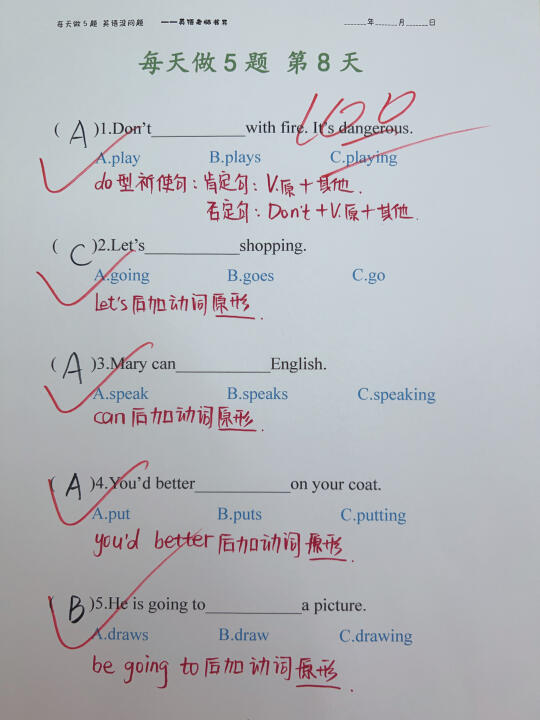 每天做5题 英语没问题 ——英语老师书写 ______年______月______日
每天做5题 第8天
100
(A)1.Don't____________with fire. It's dangerous.
A.play B.plays C.playing
do型祈使句:肯定句:V.原+其他.
否定句:Don't+V.原+其他.
(C)2.Let's____________shopping.
A.going B.goes C.go
Let's后加动词原形.
(A)3.Mary can____________English.
A.speak B.speaks C.speaking
can后加动词原形.
(A)4.You'd better____________on your coat.
A.put B.puts C.putting
you'd better后加动词原形.
(B)5.He is going to____________a picture.
A.draws B.draw C.drawing
be going to后加动词原形.